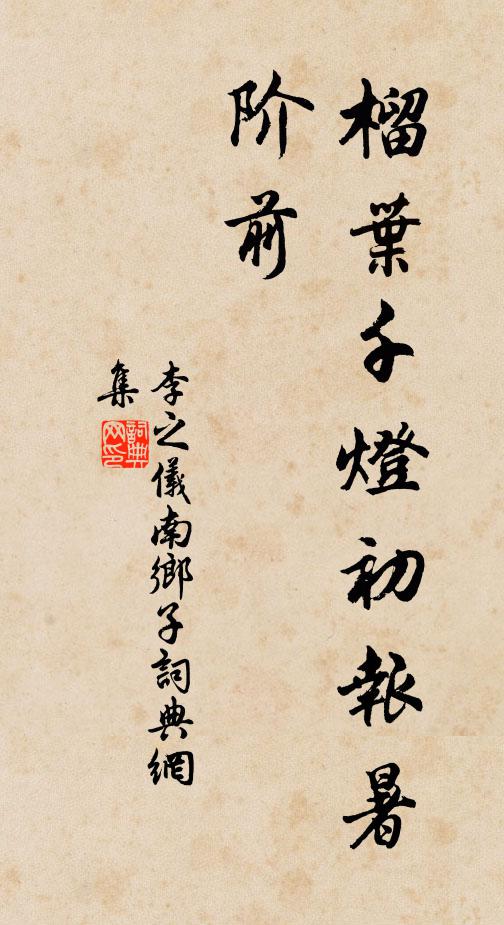 榴葉千燈初報暑
阶前
李之儀南鄉子詞典網
集
詞典
网印